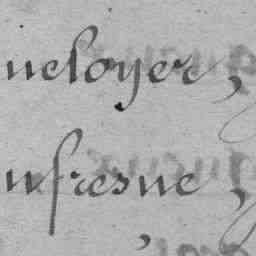 ueloyer,
ufresne,